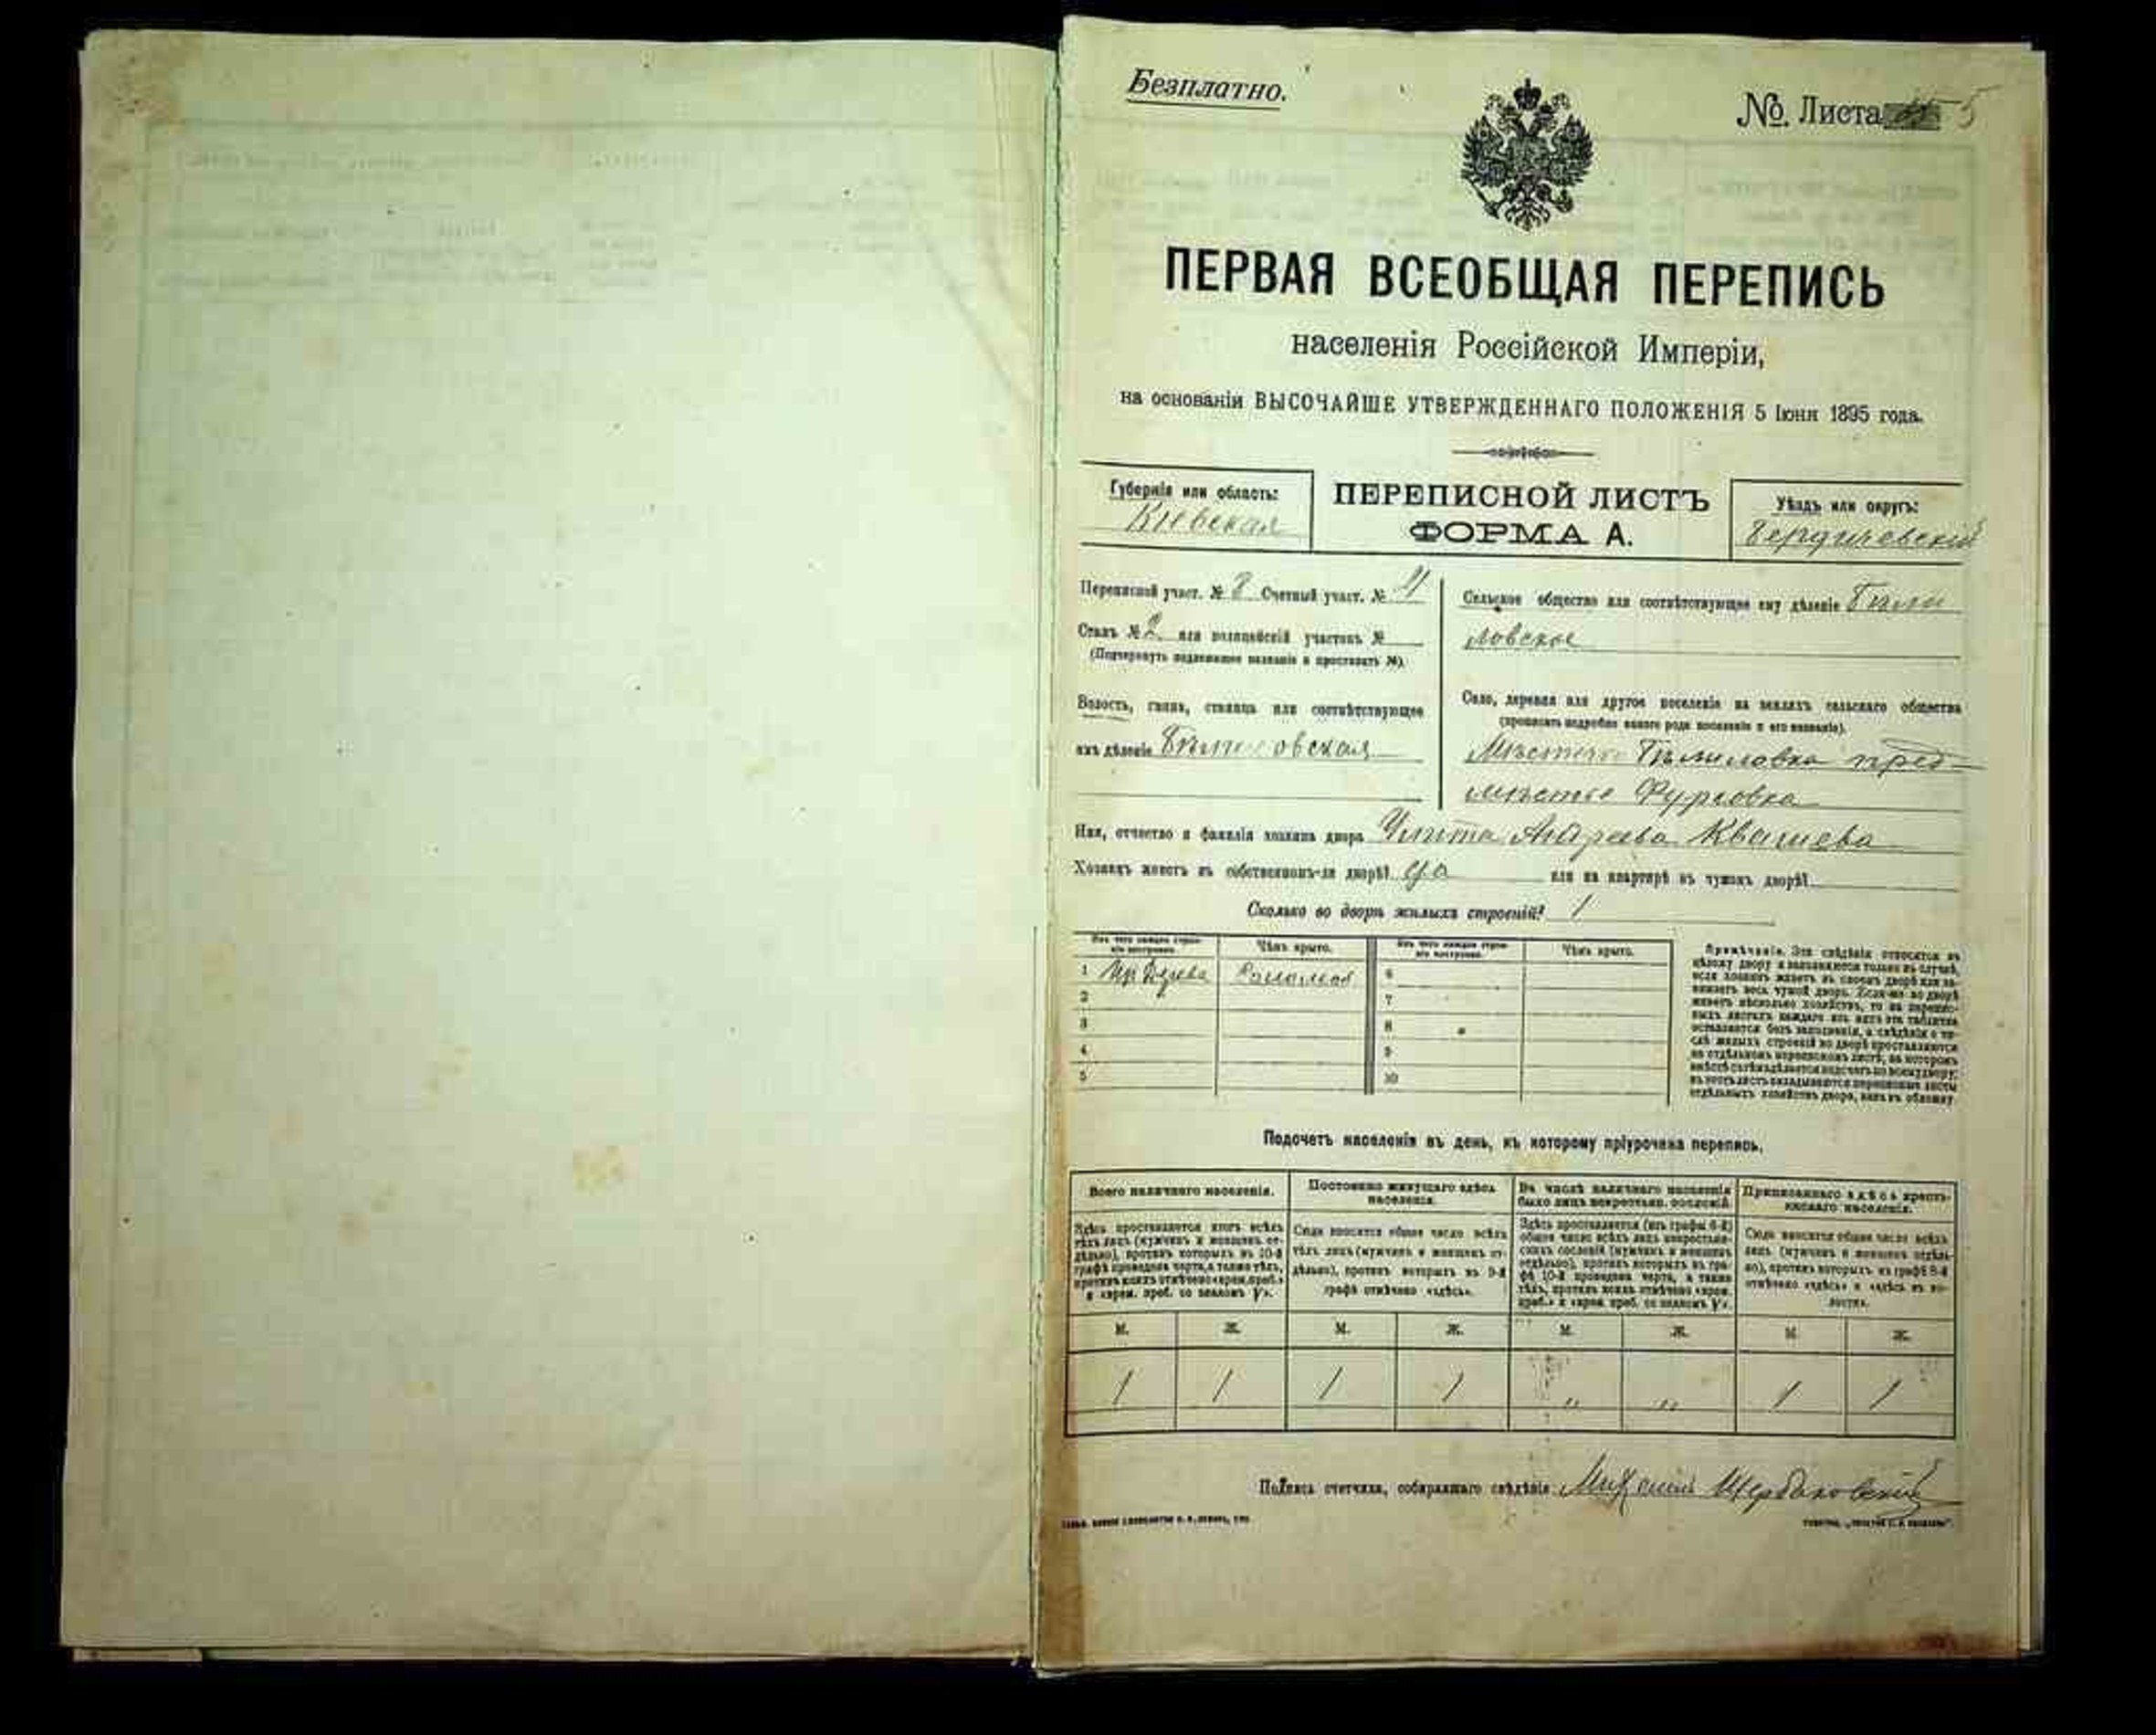 Безплатно.
№ Листа 5
ПЕРВАЯ ВСЕОБЩАЯ ПЕРЕПИСЬ
населенія Россійской Имперіи,
на основаніи ВЫСОЧАЙШЕ УТВЕРЖДЕННАГО ПОЛОЖЕНІЯ 5 Іюня 1895 года.
Губернія или область:
Кіевская
ПЕРЕПИСНОЙ ЛИСТЪ
ФОРМА А.
Уѣздъ или округъ:
Бердичевскій
Переписной участ. № 8 Счетный участ. № 4
Станъ № 2 или полицейскій участокъ №
(Подчеркнуть надлежащее названіе и проставить №).
Волость, гмина, станица или соотвѣтствующее
имъ дѣленіе Бѣлиловская
Сельское общество или соотвѣтствующее ему дѣленіе Бѣли
ловское
Село, деревня или другое поселеніе на земляхъ сельскаго общества
(прописать подробно какого рода поселеніе и его названіе).
Мѣстечко Бѣлиловка пред-
мѣстье
Имя, отчество и фамилія хозяина двора Андреева
Хозяинъ живетъ въ собственномъ-ли дворѣ? да или на квартирѣ въ чужомъ дворѣ?
Сколько во дворѣ жилыхъ строеній? 1
Изъ чего каждое строеніе построено. Чѣмъ крыто. Изъ чего каждое строеніе построено. Чѣмъ крыто.
1 Изъ дерева Соломой 6
2 7
3 8
4 9
5 10
Примѣчаніе. Эти свѣдѣнія относятся къ
цѣлому двору и заполняются только въ случаѣ,
если хозяинъ живетъ въ своемъ дворѣ или за-
нимаетъ весь чужой дворъ. Если-же во дворѣ
живетъ нѣсколько хозяйствъ, то на перепис-
ныхъ листахъ каждаго изъ нихъ эта табличка
оставляется безъ заполненія, а свѣдѣнія о чи-
слѣ жилыхъ строеній во дворѣ проставляются
на отдѣльномъ переписномъ листѣ, на которомъ
вмѣстѣ съ тѣмъ дѣлается подсчетъ по всему двору;
въ этотъ листъ вкладываются переписные листы
отдѣльныхъ хозяйствъ двора, какъ въ обложку.
Подсчетъ населенія въ день, къ которому пріурочена перепись.
Всего наличнаго населенія.
Здѣсь проставляется итогъ всѣхъ
тѣхъ лицъ (мужчинъ и женщинъ от-
дѣльно), противъ которыхъ въ 10-й
графѣ проведена черта, а также тѣхъ,
противъ коихъ отмѣчено «врем. преб.»
и «врем. преб. со знакомъ V».
Постоянно живущаго здѣсь
населенія.
Сюда вносится общее число всѣхъ
тѣхъ лицъ (мужчинъ и женщинъ от-
дѣльно), противъ которыхъ въ 9-й
графѣ отмѣчено «здѣсь».
Въ числѣ наличнаго населенія
было лицъ некрестьян. сословій.
Здѣсь проставляется (изъ графы 6-й)
общее число всѣхъ лицъ некрестьян-
скихъ сословій (мужчинъ и женщинъ
отдѣльно), противъ которыхъ въ гра-
фѣ 10-й проведена черта, а также
тѣхъ, противъ коихъ отмѣчено «врем.
преб.» и «врем. преб. со знакомъ V».
Приписаннаго здѣсь кресть-
янскаго населенія.
Сюда вносится общее число всѣхъ
лицъ (мужчинъ и женщинъ отдѣль-
но), противъ которыхъ въ графѣ 8-й
отмѣчено «здѣсь» и «здѣсь въ во-
лости».
М. Ж. М. Ж. М. Ж. М. Ж.
1 1 1 1 " " 1 1
Подпись счетчика, собиравшаго свѣдѣнія Щербаковскій